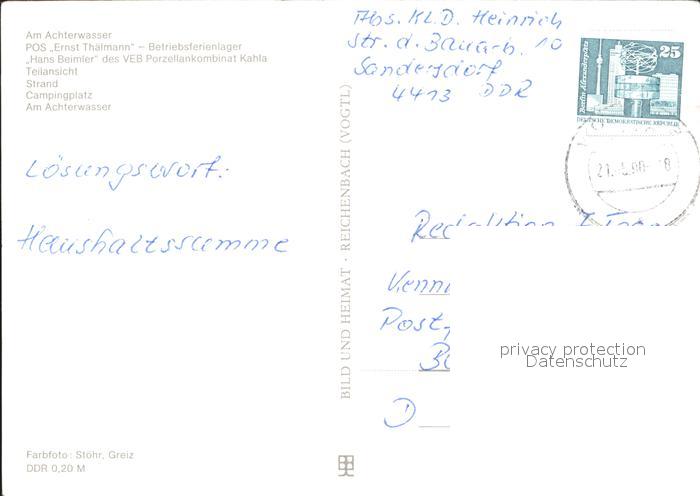 Am Achterwasser
POS „Ernst Thälmann" – Betriebsferienlager
„Hans Beimler" des VEB Porzellankombinat Kahla
Teilansicht
Strand
Campingplatz
Am Achterwasser
Abs. Kl. D. Heinrich
Str. d. Bauarb. 10
Sandersdorf
4413 DDR
25
Berlin, Alexanderplatz
DEUTSCHE DEMOKRATISCHE REPUBLIK
Lösungswort:
Haushaltssumme
BILD UND HEIMAT · REICHENBACH (VOGTL)
Redaktion
Kenn
Post
D
privacy protection
Datenschutz
Farbfoto: Stöhr, Greiz
DDR 0,20 M